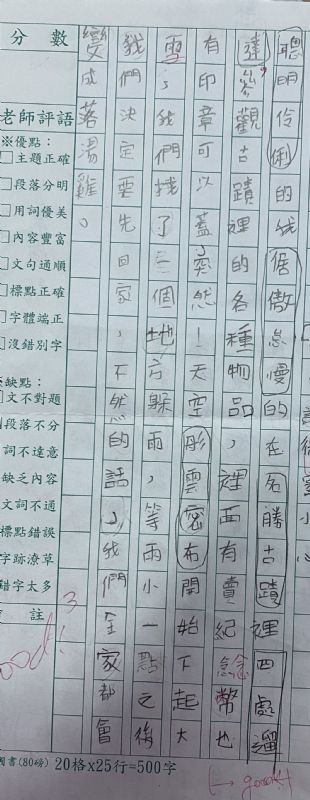 聰明伶俐的我倨傲怠慢的在名勝古蹟裡四處溜
達，參觀古蹟裡的各種物品，裡面有賣紀念幣也
有印章可以蓋，突然！天空彤雲密布開始下起大
雪，我們找了三個地方躲雨，等雨小一點之後
我們決定要先回家，不然的話，我們全家都會
變成落湯雞。
分數
老師評語
※優點：
□主題正確
□段落分明
□用詞優美
□內容豐富
□文句通順
□標點正確
□字體端正
□沒錯別字
缺點：
文不對題
段落不分
詞不達意
缺乏內容
文詞不通
標點錯誤
字跡潦草
錯字太多
註
good!
3
國書(80磅) 20格x25行=500字
good!